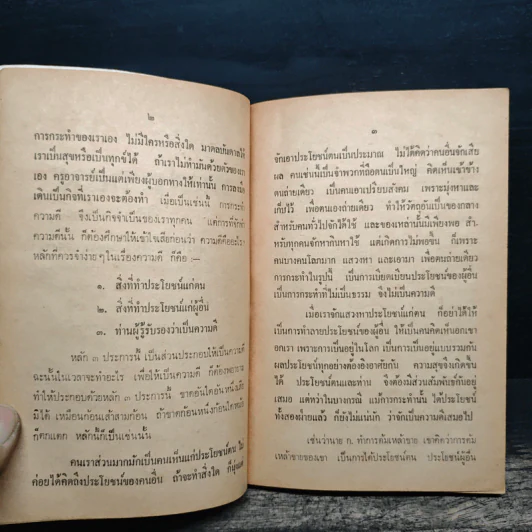 ๒
การกระทำของเราเอง ไม่มีใครหรือสิ่งใด มาดลบันดาลให้
เราเป็นสุขหรือเป็นทุกข์ได้ ถ้าเราไม่ทำมันด้วยตัวของเรา
เอง ครูอาจารย์เป็นแต่เพียงผู้บอกทางให้เท่านั้น การลง
เดินเป็นกิจที่เราเองจะต้องทำ เมื่อเป็นเช่นนี้ การกระทำ
ความดี จึงเป็นกิจจำเป็นของเราทุกคน แต่การที่จักทำ
ความดีนั้น ก็ต้องศึกษาให้เข้าใจเสียก่อนว่า ความดีคืออะไร
หลักที่ควรจำง่าย ๆ ในเรื่องความดี ก็คือ :–
๑. สิ่งที่ทำประโยชน์แก่ตน
๒. สิ่งที่ทำประโยชน์แก่ผู้อื่น
๓. ท่านผู้รู้รับรองว่าเป็นความดี
หลัก ๓ ประการนี้ เป็นส่วนประกอบให้เป็นความดี
ฉะนั้นในเวลาจะทำอะไร เพื่อให้เป็นความดี ก็ต้องพยายาม
ทำให้ประกอบด้วยหลัก ๓ ประการนี้ ขาดอันใดอันหนึ่งเสีย
มิได้ เหมือนก้อนเส้าสามก้อน ถ้าขาดก้อนหนึ่งก้อนใดหม้อ
ก็ตกแตก หลักนี้ก็เป็นเช่นนั้น
คนเราส่วนมากมักเป็นคนเห็นแก่ประโยชน์ตน ไม่
ค่อยได้คิดถึงประโยชน์ของคนอื่น ถ้าจะทำสิ่งใด ก็มุ่งแต่
๓
จักเอาประโยชน์ตนเป็นประมาณ ไม่ได้คิดว่าคนอื่นจักเสีย
ผล คนเช่นนี้เป็นจำพวกที่ลอดตนเป็นใหญ่ คิดเห็นเข้าข้าง
ตนถ่ายเดียว เป็นคนเอาเปรียบสังคม เพราะมุ่งหาและ
เก็บไว้ เพื่อตนเองถ่ายเดียว ทำให้วัตถุอันเป็นของกลาง
สำหรับคนทั่วไปจักได้ใช้ และของเหล่านั้นมีเพียงพอ สำ-
หรับทุกคนจักหากินหาใช้ แต่เกิดการไม่พอขึ้น ก็เพราะ
คนบางคนโลภมาก แสวงหา และเอามา เพื่อตนถ่ายเดียว
การกระทำในรูปนี้ เป็นการเบียดเบียนประโยชน์ของผู้อื่น
เป็นการกระทำที่ไม่เป็นธรรม จึงไม่เป็นความดี
เมื่อเราจักแสวงหาประโยชน์แก่ตน ก็อย่าได้ให้
เป็นการทำลายประโยชน์ของผู้อื่น ให้เป็นคนคิดหัวอกเขา
อกเรา เพราะการเป็นอยู่ในโลก เป็นการเป็นอยู่แบบรวมกัน
ผลประโยชน์ทุกอย่างต้องอิงอาศัยกัน ความสุขจึงเกิดขึ้น
ได้ ประโยชน์ตนและท่าน จึงต้องมีส่วนสัมพันธ์กันอยู่
เสมอ แต่ทว่าในบางกรณี แม้การกระทำนั้น ได้ประโยชน์
ทั้งสองฝ่ายแล้ว ก็ยังไม่แน่นัก ว่าจักเป็นความดีเสมอไป
เช่นว่านาย ก. ทำการต้มเหล้าขาย เขาคิดว่าการต้ม
เหล้าขายของเขา เป็นการได้ประโยชน์ตน ประโยชน์ผู้อื่น